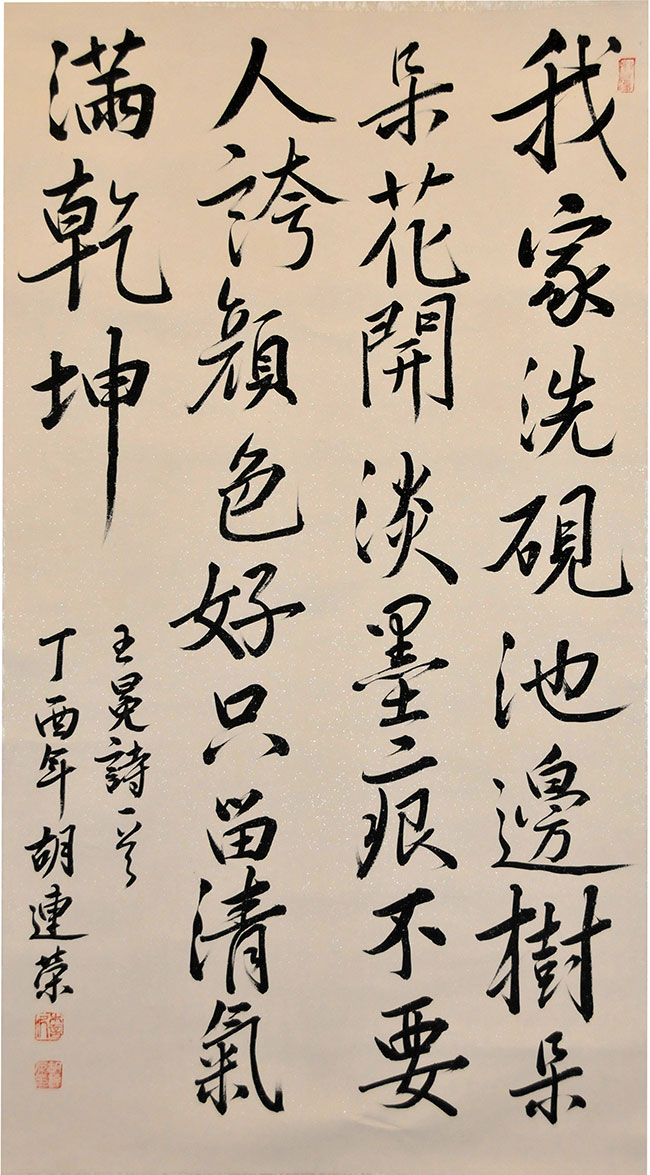 我家洗硯池邊樹朵
朵花開淡墨痕不要
人誇顔色好只留清氣
滿乾坤
王冕詩一首
丁酉年胡連榮